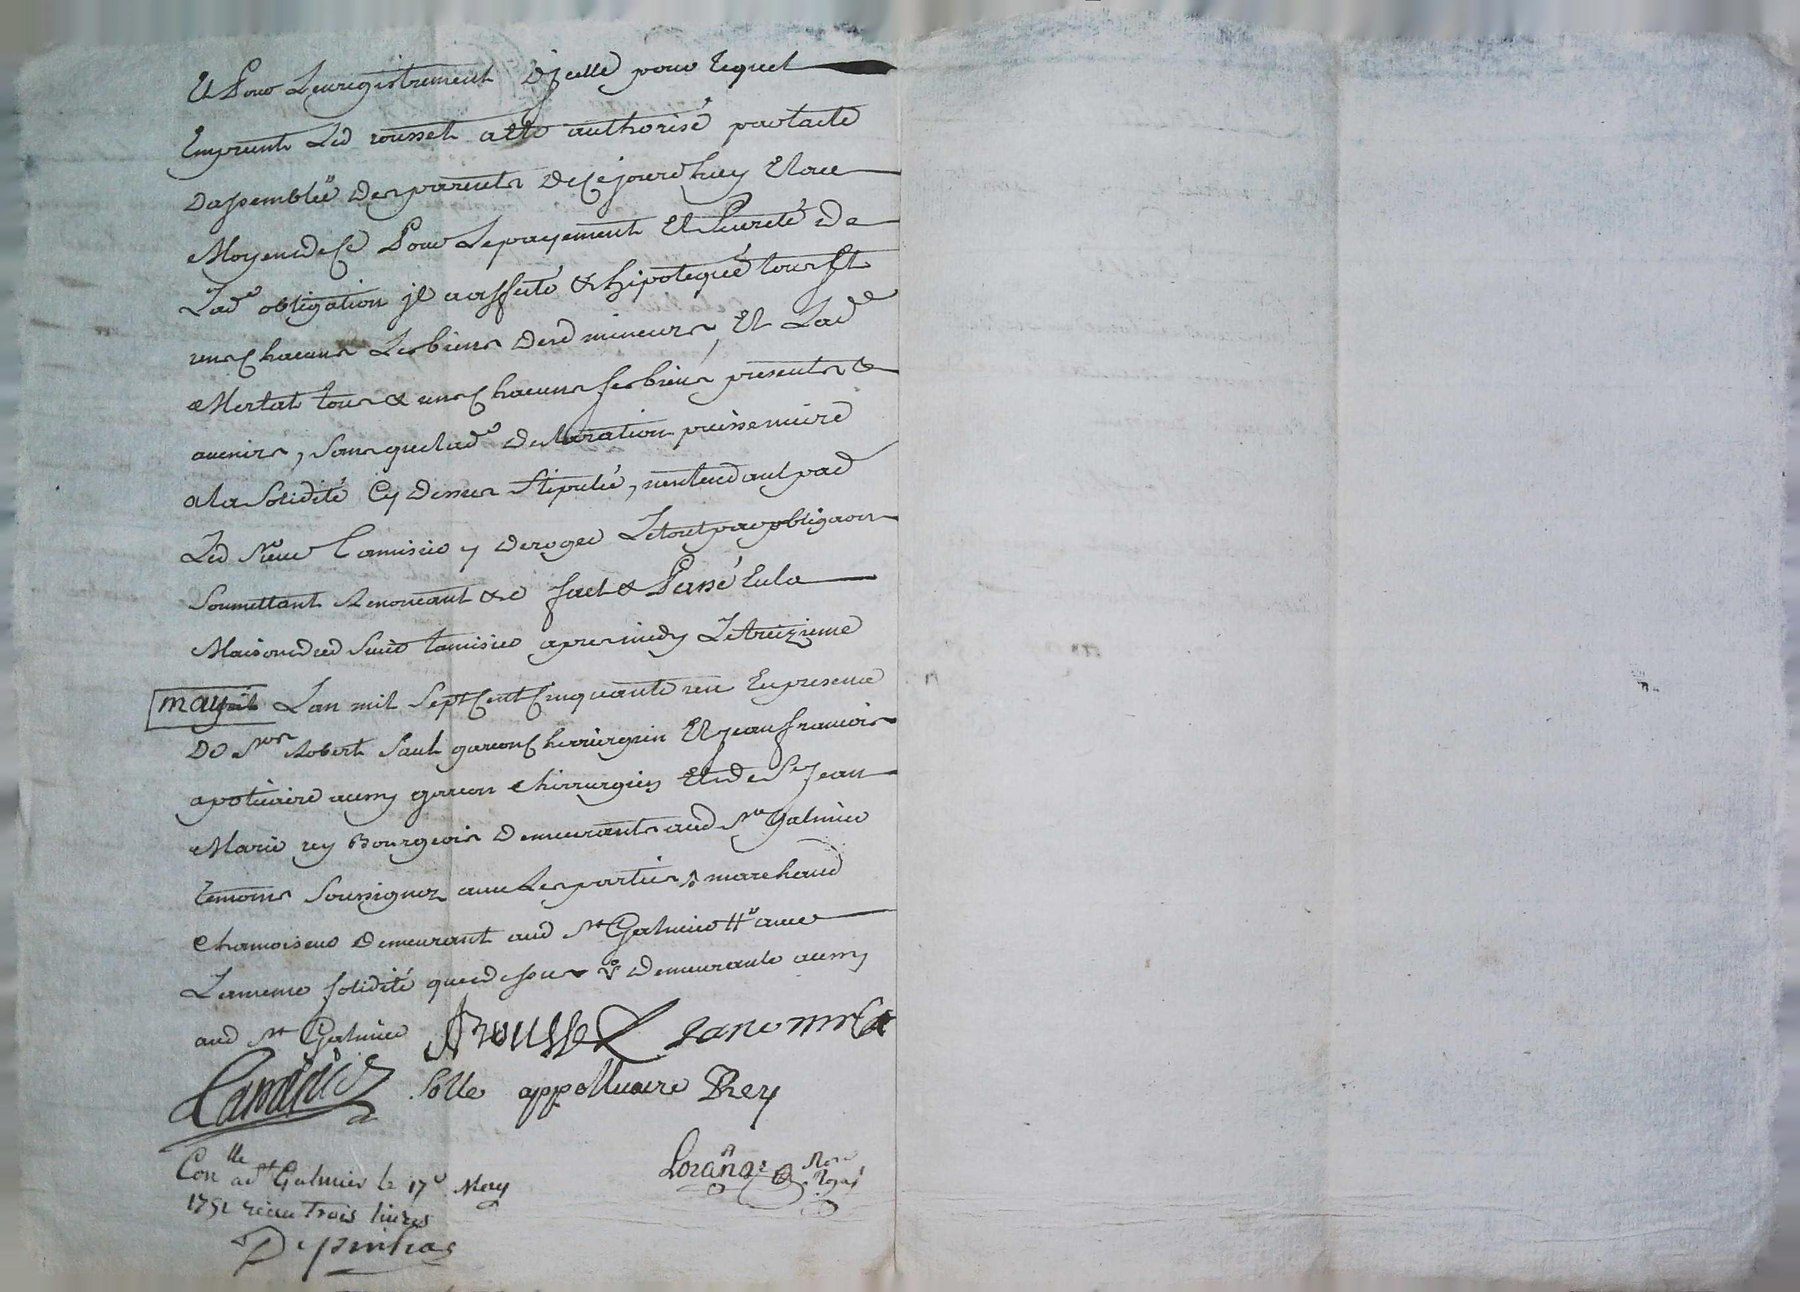 Et Pour Lenregistrement d'jcelle pour lequel
Emprunt Led roussel a été authorisé par lacte
Dassemblée des parents de Cejourdhuy Et au
Moyen de Ce Pour Le payement Et Sureté de
Lad.e obligation jl a affecté & hipotequé tous &
uns Chacuns Les biens desd mineurs, Et Lad.e
Mertat tous & uns Chacuns ses biens presents &
avenirs, sans que lad.e declaration puisse nuire
a la Solidité Cy dessus Stipulée, nentendant pas
Led Sieur Tamisier y deroger Le tout par obligaon
Soumettant Renonceant &c fait & Passé En la
Maison dud Sieur tamisier apres midy Le treizieme
may Lan mil Sept Cent Cinquante un En presence
De Srs Robert Saul garcon Cherurgien Et jean francois
apoticaire aussy garcon Chirurgien Et de Sr Jean
Marie rey Bourgeois Demeurants aud St Galmier
temoins Soussignez avec Les parties marchand
Chamoiseur Demeurant aud St Galmier # avec
La meme solidité que dessus Demeurante aussy
aud St Galmier Roussel
Tamisier Solle appotticaire Rey
Con.lle a St Galmier le 17e May
1751 recu trois livres